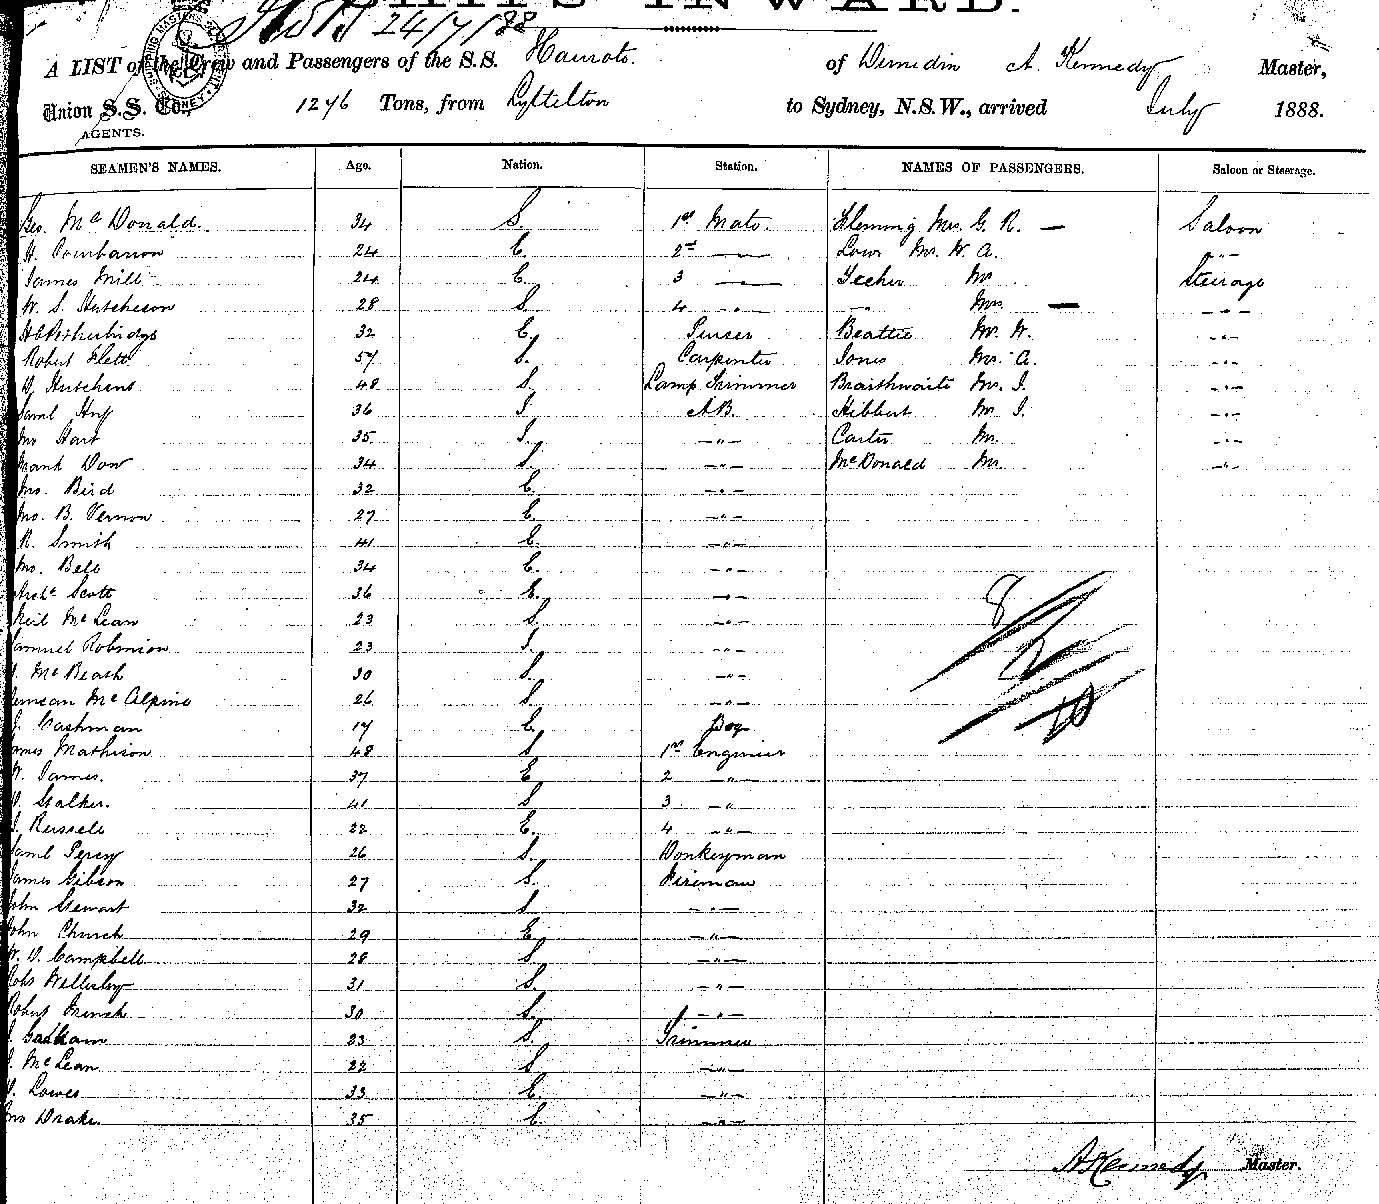 SHIPS INWARD.
24/7/88
A LIST of the Crew and Passengers of the S.S. Hauroto. of Dunedin A. Kennedy Master,
Union S.S. Co., 1276 Tons, from Lyttelton to Sydney, N.S.W., arrived July 1888.
AGENTS.
SEAMEN'S NAMES. Age. Nation. Station. NAMES OF PASSENGERS. Saloon or Steerage.
Geo. McDonald. 34 S. 1st Mate. Fleming Mrs. G. R. — Saloon
H. 24 E. 2nd — Low Mr. W. A. -"-
James Mill 24 E. 3 — Mr Steerage
W. S. Hutcheson 28 S. 4 -"- -"- Mrs. — -"-
32 E. Purser Beattie Mr. W. -"-
Robert Flett 57 S. Carpenter Jones Mr. A. -"-
D. Hutchens 48 S. Lamp Trimmer Braithwaite Mr. J. -"-
Saml 36 S. A.B. Hibbert Mr. J. -"-
Jno Hart 35 S. -"- Carter Mr. -"-
Frank Dow 34 S. -"- McDonald Mr. -"-
Jno. Bird 32 E. -"-
Jno. B. Vernon 27 E. -"-
R. Smith 41 E. -"-
Jno. Bell 34 E. -"-
Archd Scott 36 E. -"-
Neil McLean 23 S. -"-
Samuel Robinson 23 S. -"-
McBeath 30 S. -"-
Duncan McAlpine 26 S. -"-
J. Cashman 17 E. Boy
James Mathison 48 S. 1st Engineer
W. James. 37 E. 2 -"-
D. Stalker. 41 S. 3 -"-
J. Russell 22 E. 4 -"-
Saml Percy 26 S. Donkeyman
James Gibson 27 S. Fireman
John Stewart 32 S. -"-
John Church 29 E. -"-
W. D. Campbell 28 S. -"-
Robt Wellesley 31 S. -"-
Robert French 30 S. -"-
23 S. Trimmer
J. McLean 22 S. -"-
Lowes 33 E. -"-
Jno Drake. 35 E. -"-
8
2
10
A Kennedy Master.